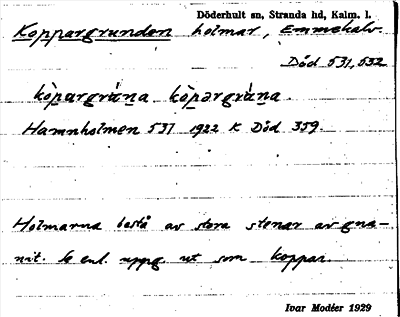 Döderhult sn, Stranda hd, Kalm. l.
Koppargrunden holmar, Emmekalv.
Död 531, 532
kòpargrùna kòpərgrùna.
Hamnholmen 531 1922 K Död 359.
Holmarna bestå av stora stenar av gra-
nit. Se enl. uppg ut som koppar
Ivar Modéer 1929